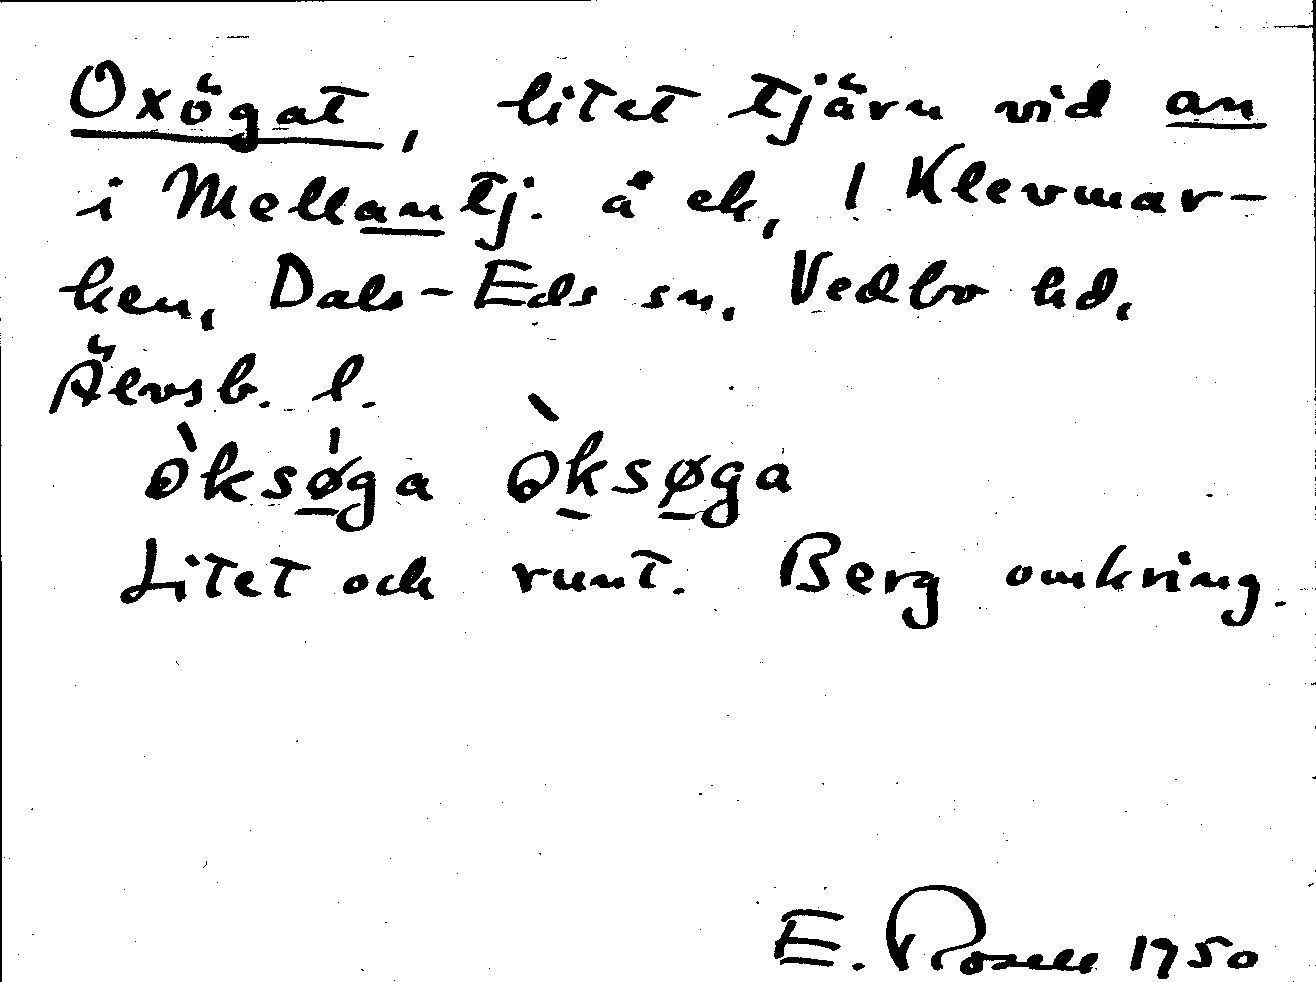 Oxögat, litet tjärn vid an
i Mellantj. å ek, 1 Klevmar-
ken, Dals-Eds sn. Vedbo hd,
Älvsb. l.
òksǿga òksøga
Litet och runt. Berg omkring.
E. Rosell 1950